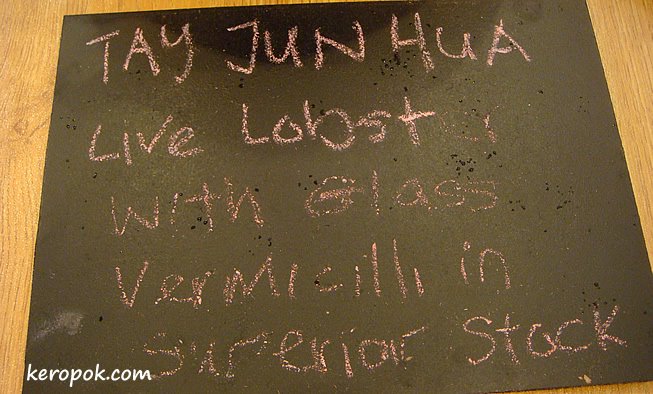 TAY JUN HUA
Live Lobster
with Glass
Vermicilli in
Superior Stock
keropok.com